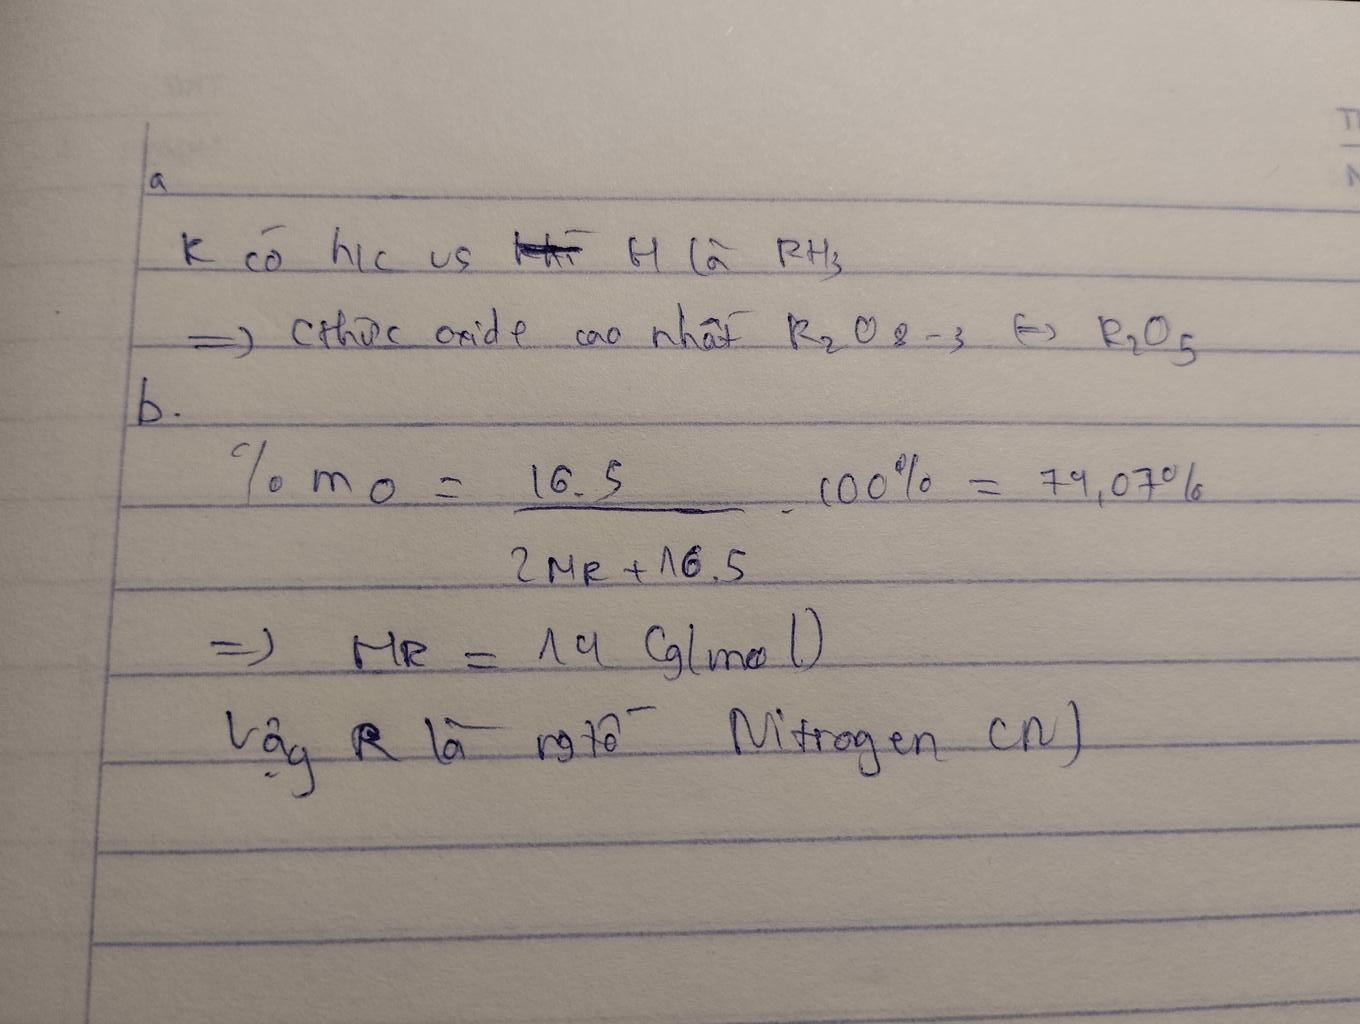 a
R có h/c vs H là RH3
=> Cthức oxide cao nhất R2O8-3 <=> R2O5
b.
%mO = 16.5 / 2MR + 16.5 . 100% = 74,07%
=> MR = 14 (g/mol)
Vậy R là ngtố Nitrogen (N)